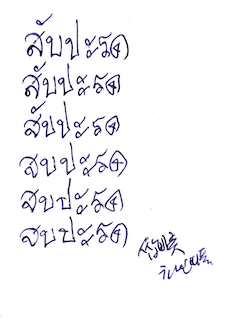 สับปะรด
สับปะรด
สับปะรด
สบปะรด
สบปะรด
สบปะรด